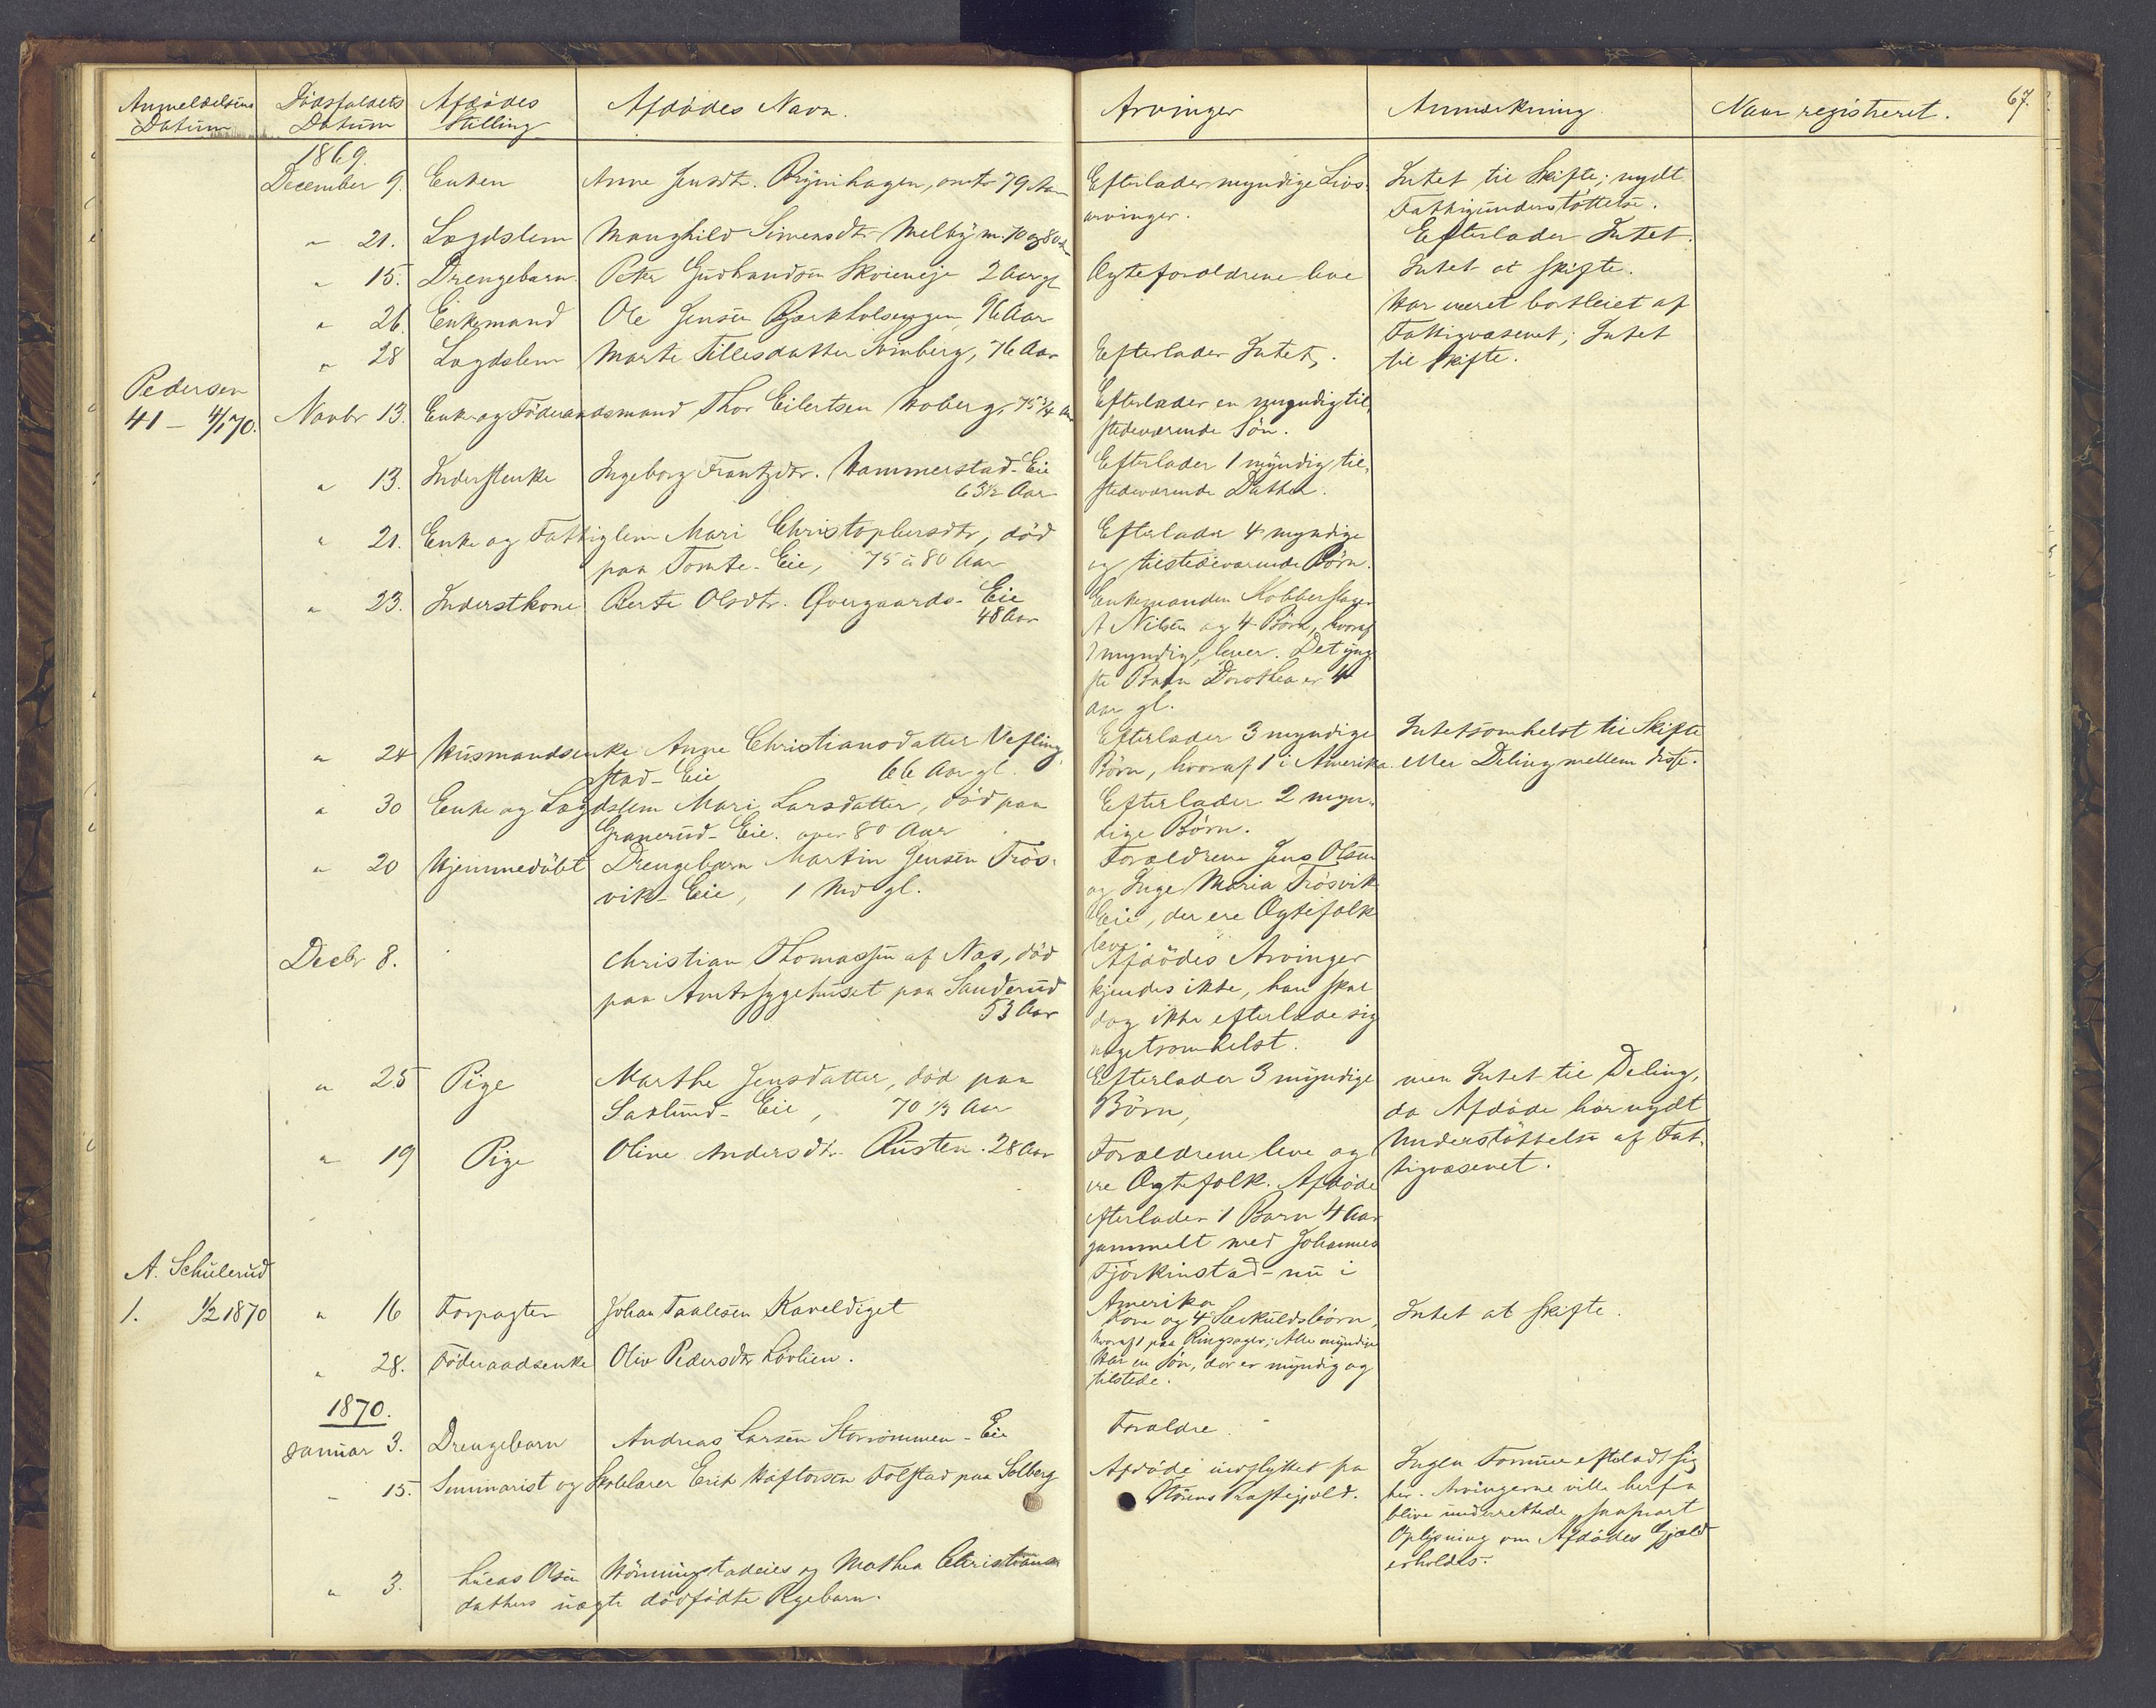 Anmeldelsens Datum | Dödsfaldets Datum | Afdödes Stilling | Afdödes Navn. | Arvinger | Anmærkning. | Naar registreret. | 67.
1869.
December 9. | Enken | Anne Jensdtr. Brynihagen, omtr 79 Aar | Efterlader myndige Livs- | Intet til Skifte; nydt
arvinger. | Fattigunderstöttelse.
" 21. | Lægdslem | Manghild Simensdtr Melby m. 70 og 80 | Efterlader Intet.
" 15. | Drengebarn | Peder Gudbrandsen Skoieneje 2 Aar gl | Ægteforældrene leve | Intet at skifte.
" 26. | Enkemand | Ole Jensen Bjærkholseggen, 96 Aar | Har været bortleiet af
Fattigvæsenet; Intet
" 28 | Lægdslem | Marte Tillesdatter Svinberg, 76 Aar | Efterlader Intet. | til skifte.
Pedersen
41 - 4/1 70. | Novbr 13. | Enke og Föderaadsmand Thor Eilertsen Hoberg, 75 3/4 Aar | Efterlader en myndig til-
stedeværende Sön.
" 13. | Inderstenke | Ingeborg Frantzdtr. Hammerstad-Eie | Efterlader 1 myndig til-
63 1/2 Aar | stedeværende Datter.
" 21. | Enke og Fattiglem Mari Christophersdtr, död | Efterlader 4 myndige
paa Tomte-Eie, 75 à 80 Aar | og tilstedeværende Börn.
" 23. | Inderstkone | Berte Olsdtr. Øvergaards-Eie | Enkemanden Kobberslager
48 Aar | A Nilsen og 4 Börn, hvoraf
1 myndig, lever. Det yng-
ste Barn Dorothea er 4
Aar gl.
" 24 | Husmandsenke Anne Christiansdatter Vefling- | Efterlader 3 myndige | Intetsomhelst til Skifte
stad-Eie 66 Aar gl. | Börn, hvoraf 1 i Amerika. | eller Deling mellem disse.
" 30 | Enke og Lægdslem Mari Larsdatter, död paa | Efterlader 2 myn-
Granerud-Eie. over 80 Aar | dige Börn.
" 20 | Hjemmedöbt | Drengebarn Martin Jensen Frös- | Forældrene Jens Olsen
vik-Eie, 1 Md gl. | og Inge Maria Frösvik
Eie, der ere Ægtefolk
leve.
Decbr 8. | Christian Thomassen af Næs, död | Afdödes Arvinger
paa Amtssygehuset paa Sanderud | kjendes ikke, han skal
53 Aar | dog ikke efterlade sig
nogetsomhelst.
" 25 | Pige | Marthe Jensdatter, död paa | Efterlader 3 myndige | men Intet til Deling,
Saxlund-Eie, 70 1/3 Aar | Börn, | da Afdöde har nydt
" 19 | Pige | Oline Andersdtr. Rusten. 28 Aar | Forældrene leve og | Understöttelse af Fat-
ere Ægtefolk. Afdöde | tigvæsenet.
efterlader 1 Barn 4 Aar
gammelt med Johannes
Fjörkinstad - nu i
Amerika
A. Schulerud
1. 1/2 1870 | " 16 | Forpagter | Johan Paulesen Kaveldiget | Kone og 4 Særkuldsbörn, | Intet at skifte.
hvoraf 1 paa Ringsager; Alle myndige
" 28. | Föderaadsenke | Oliv Pedersdtr Lövlien. | Har en Sön, der er myndig og
tilstede.
1870.
Januar 3. | Drengebarn | Andreas Larsen Storrömmen-Eie | Forældre.
" 15. | Seminarist og Skolelærer Erik Haftorsen Folstad paa Solberg | Afdöde indflyttet fra | Ingen Formue efterladt sig
Störens Præstegjæld. | her. Arvingerne ville herfra
blive underrettede, saasnart
Oplysning om Afdödes Gjæld
erholdes.
" 3. | Lucas Olsen Hönningstadeies og Mathea Christians
datters uægte dödfödte Pigebarn.